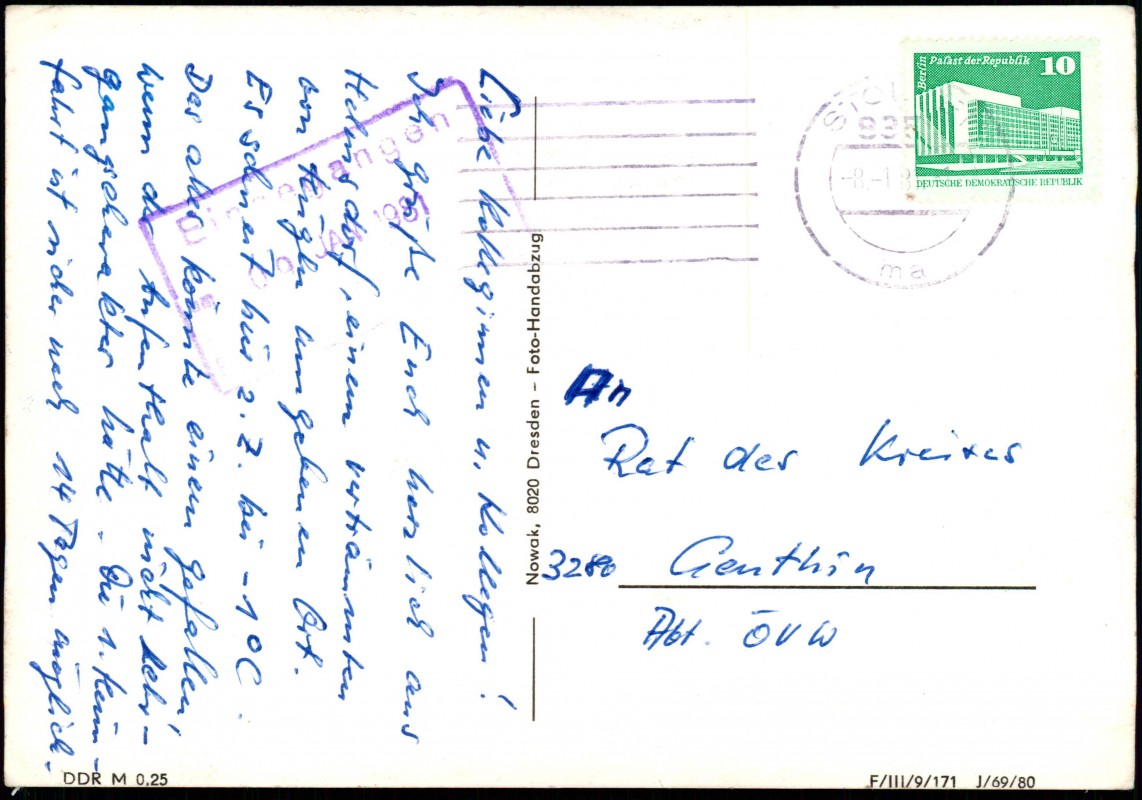 Liebe Kolleginnen u. Kollegen!
Ich grüße Euch herzlich aus
Helmsdorf, einem verträumten
von Hügeln umgebenen Ort.
Es schneit hier z. Z. bei -1°C.
Das alles könnte einem gefallen,
wenn der Aufenthalt nicht Lehr-
gangscharakter hätte. Die 1. Heim-
fahrt ist sicher nach 14 Tagen möglich.
Eingegangen
JAN. 1981
Nowak, 8020 Dresden – Foto-Handabzug
DDR M 0,25
Berlin
Palast der Republik
10
DEUTSCHE DEMOKRATISCHE REPUBLIK
-8.-1.8
ma
An
Rat des Kreises
3280 Genthin
Abt. ÖVW
F/III/9/171 J/69/80